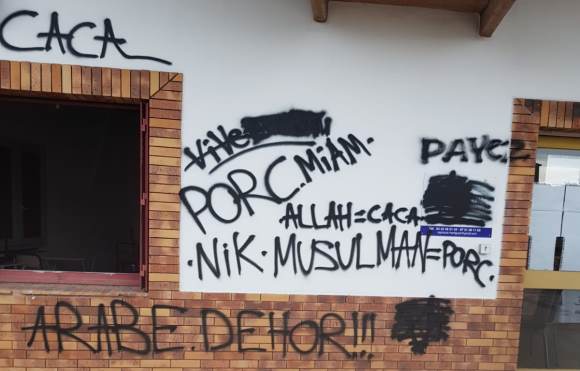 CACA
ViVe
PORC. MiAM.
PAYEZ
ALLAH=CACA
.NiK. MUSULMAN=PORC.
ARABE.DEHOR!!!